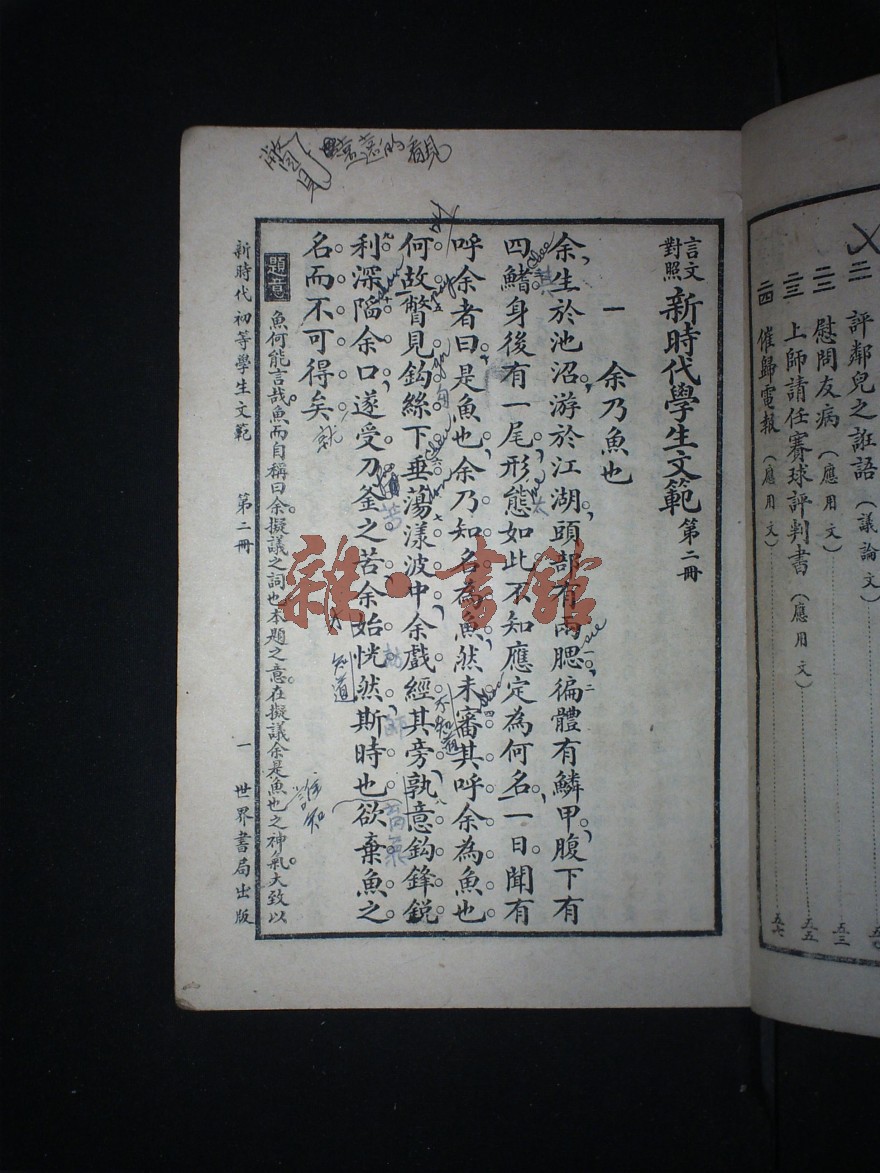 二一 評鄰兒之誑語（議論文）
二二 慰問友病（應用文） 五三
二三 上師請任賽球評判書（應用文） 五五
二四 催歸電報（應用文） 五七
遠遠的看見
言文對照 新時代學生文範 第二冊
一 余乃魚也
余生於池沼游於江湖頭部有兩腮徧體有鱗甲腹下有
四鰭身後有一尾形態如此不知應定為何名一日聞有
呼余者曰是魚也余乃知名為魚然未審其呼余為魚也
何故瞥見鈎絲下垂蕩漾波中余戲經其旁孰意鈎鋒銳
利深陷余口遂受刀釜之苦余始恍然斯時也欲棄魚之
名而不可得矣
不知道
知道
誰知
題意 魚何能言哉魚而自稱曰余擬議之詞也本題之意在擬議余是魚也之神氣大致以
新時代初等學生文範 第二冊 一 世界書局出版
雜·書館